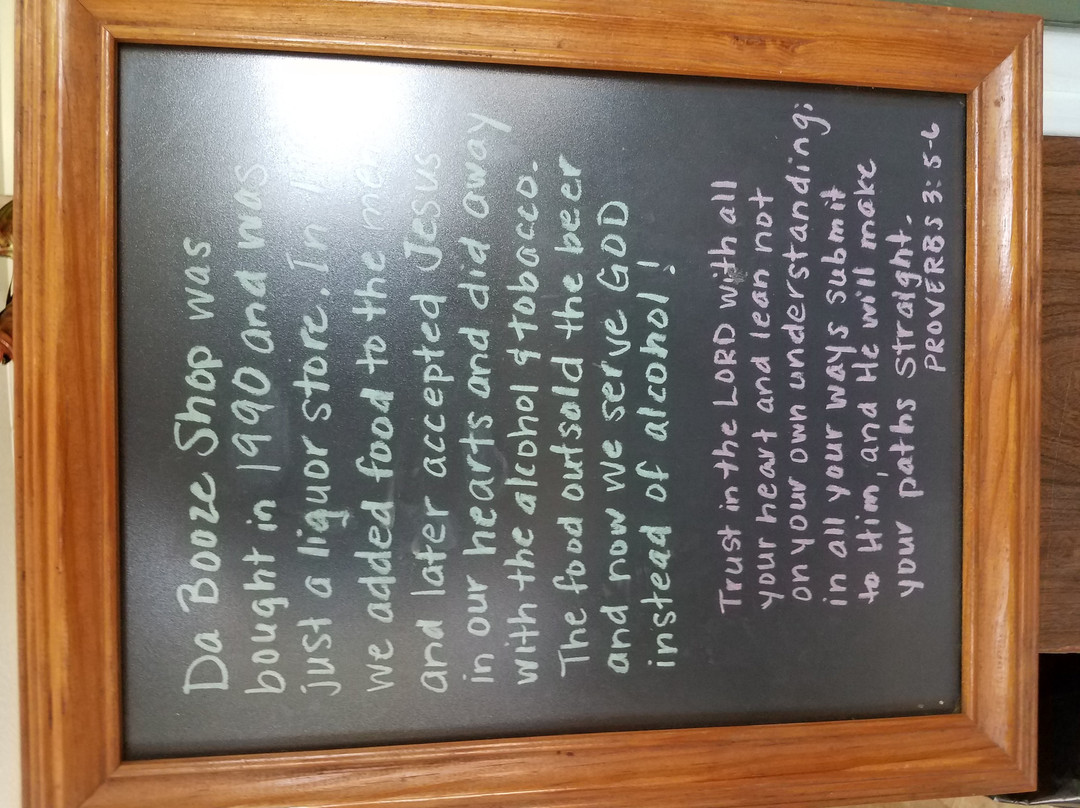 Da Booze Shop was
bought in 1990 and was
just a liquor store. In
we added food to the
and later accepted Jesus
in our hearts and did away
with the alcohol & tobacco.
The food outsold the beer
and now we serve GOD
instead of alcohol!
Trust in the LORD with all
your heart and lean not
on your own understanding;
in all your ways submit
to Him, and He will make
your paths straight.
PROVERBS 3:5-6